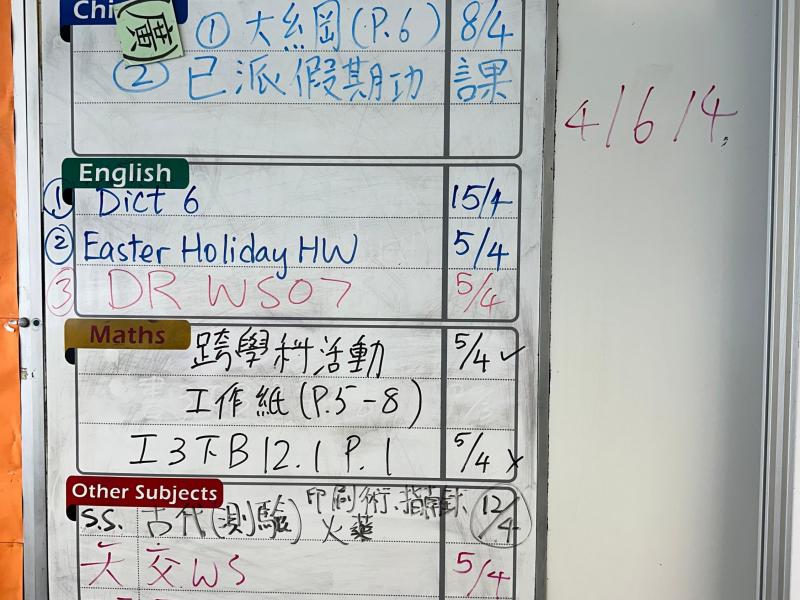 Chi
(廣)
① 大糾岡(P.6) 8/4
② 已派假期功課
4/6/4
English
① Dict 6 15/4
② Easter Holiday HW 5/4
③ DR WS07 5/4
Maths
跨學科活動 5/4 ✓
工作紙(P.5-8)
工3下B 12.1 P.1 5/4 ×
Other Subjects
S.S. 古代(測驗) 印刷術、指南針、火藥 12/4
欠交WS 5/4